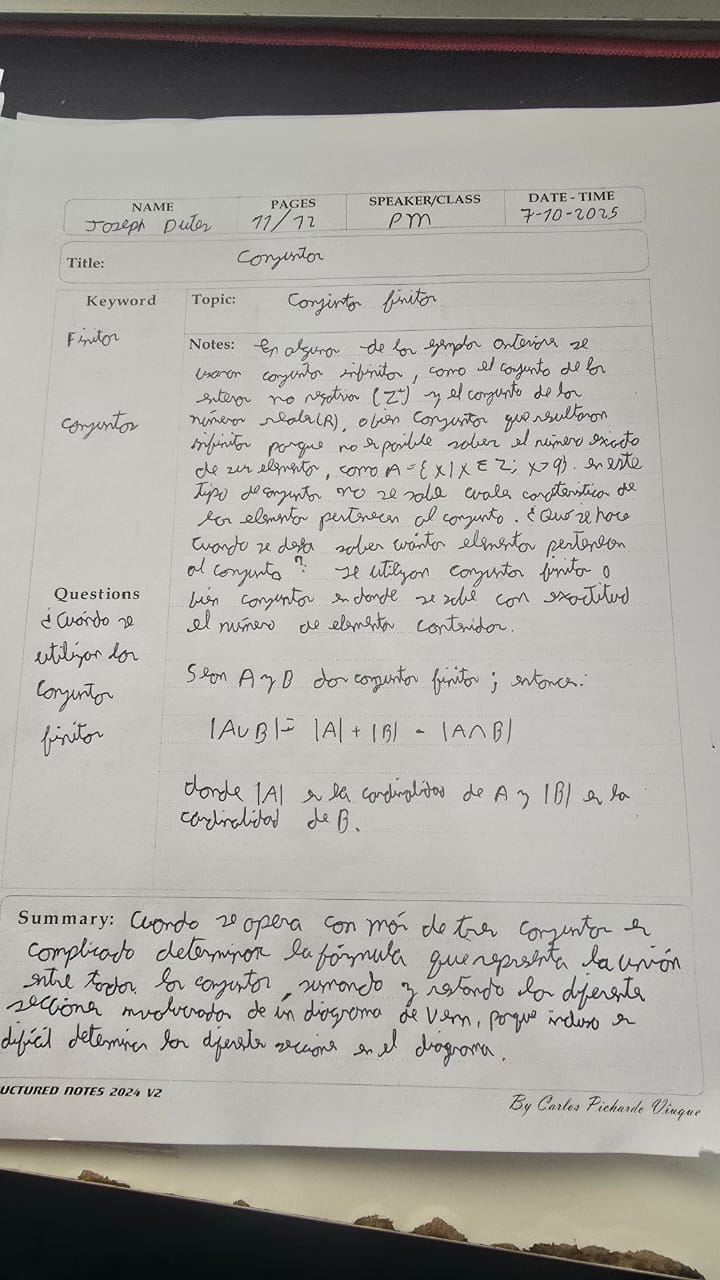 NAME PAGES SPEAKER/CLASS DATE - TIME
Joseph 11/12 PM 7-10-2025
Title: Conjuntos
Keyword Topic: Conjuntos finitos
Finitos
Conjuntos
Notes: En algunos de los ejemplos anteriores se
usaron conjuntos infinitos, como el conjunto de los
enteros no negativos (Z⁺) y el conjunto de los
números reales (R), o bien conjuntos que resultaron
infinitos porque no es posible saber el número exacto
de sus elementos, como A = {x | x ∈ Z; x > 9}. en este
tipo de conjuntos no se sabe característica de
los elementos pertenecen al conjunto. ¿Qué se hace
cuando se desea saber cuántos elementos pertenecen
al conjunto? se utilizan conjuntos finitos o
bien conjuntos en donde se sabe con exactitud
el número de elementos contenidos.
Sean A y B dos conjuntos finitos; entonces:
|A∪B| = |A| + |B| - |A∩B|
donde |A| es la cardinalidad de A y |B| es la
cardinalidad de B.
Questions
¿Cuándo se
utilizan los
Conjuntos
finitos
Summary: Cuando se opera con más de tres conjuntos es
complicado determinar la fórmula que representa la unión
entre todos los conjuntos, sumando y restando las diferentes
secciones involucradas de un diagrama de Venn, porque incluso es
difícil determinar las diferentes secciones en el diagrama.
UCTURED NOTES 2024 V2
By Carlos Pichardo Viuque